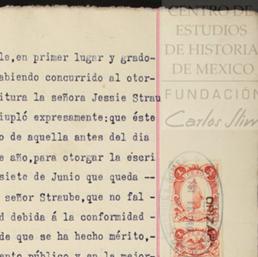 CENTRO DE
ESTUDIOS
DE HISTORIA
DE MEXICO
FUNDACIÓN
Carlos Slim
le, en primer lugar y grado-
abiendo concurrido al otor-
itura la señora Jessie Strau
iupló expresamente: que éste
o de aquella antes del día
e año, para otorgar la escri
siete de Junio que queda --
señor Straube, que no fal-
d debida á la conformidad -
de que se ha hecho mérito,-
ento público y en la major-